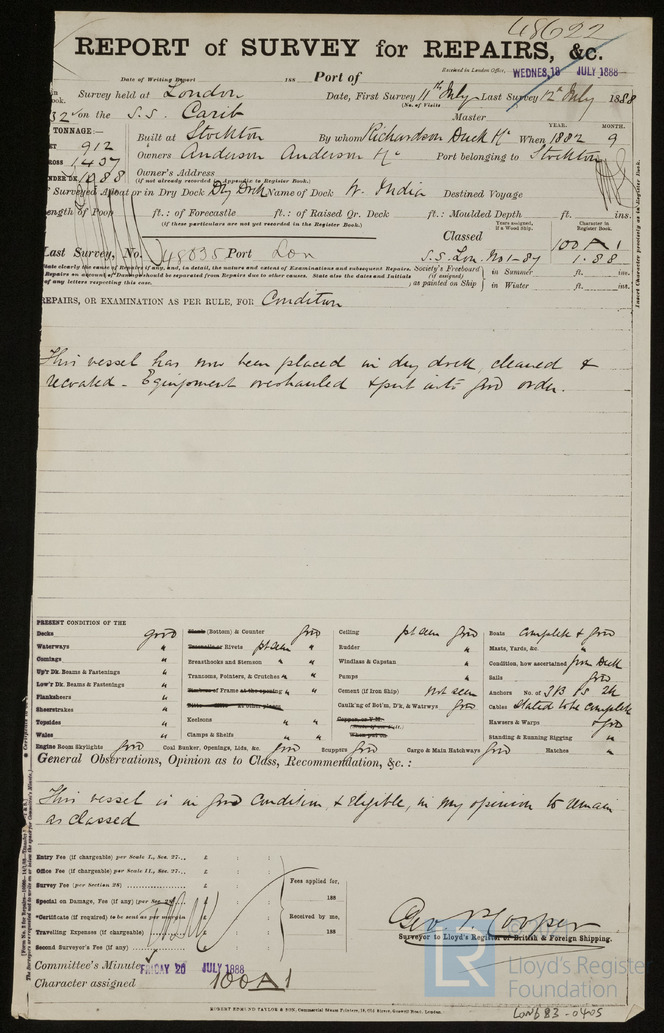 48622
REPORT of SURVEY for REPAIRS, &c.
Date of Writing Report 188 Port of Received in London Office, WEDNES. 18 JULY 1888
Survey held at London Date, First Survey 11th July Last Survey 12th July 1888
(No. of Visits
on the S.S. Carib Master
TONNAGE:—
YEAR. MONTH.
Built at Stockton By whom Richardson Duck & Co When 1882 9
912
GROSS 1437
Owners Anderson Anderson & Co Port belonging to Stockton
UNDER DK. 1088
Owner's Address
(if not already recorded in Appendix to Register Book.)
If Surveyed Afloat or in Dry Dock Dry Dock Name of Dock W. India Destined Voyage
Length of Poop ft.: of Forecastle ft.: of Raised Qr. Deck ft.: Moulded Depth ft. ins.
(if these particulars are not yet recorded in the Register Book.)
Years assigned, if a Wood Ship. Character in Register Book.
Classed 100 A 1
Last Survey, No. 48035 Port Lon S.S. Lon. No 1-87 1.88
State clearly the cause of Repairs if any, and, in detail, the nature and extent of Examinations and subsequent Repairs.
Repairs on account of Damage should be separated from Repairs due to other causes. State also the dates and Initials
of any letters respecting this case.
Society's Freeboard (if assigned) as painted on Ship in Summer ft. ins.
in Winter ft. ins.
Insert Character precisely as in Register Book.
REPAIRS, OR EXAMINATION AS PER RULE, FOR Condition
This vessel has now been placed in dry dock, cleaned &
recoated – Equipment overhauled & put into good order.
PRESENT CONDITION OF THE
Decks good
Waterways "
Comings "
Up'r Dk. Beams & Fastenings "
Low'r Dk. Beams & Fastenings "
Planksheers "
Sheerstrakes "
Topsides "
Wales "
(Bottom) & Counter good
Rivets pt seen "
Breasthooks and Stemson " "
Transoms, Pointers, & Crutches " "
of Frame
Keelsons " "
Clamps & Shelfs " "
Ceiling pt seen good
Rudder "
Windlass & Capstan "
Pumps "
Cement (if Iron Ship) Not seen
Caulk'ng of Bot'm, D'k, & Watrwys good
Boats complete & good
Masts, Yards, &c. "
Condition, how ascertained from Deck
Sails good
Anchors No. of 3B 1S 2K
Cables Stated to be complete
Hawsers & Warps & good
Standing & Running Rigging "
Engine Room Skylights good Coal Bunker, Openings, Lids, &c. good Scuppers good Cargo & Main Hatchways good Hatches "
General Observations, Opinion as to Class, Recommendation, &c.:
This vessel is in good condition & eligible, in my opinion to remain
as classed
Entry Fee (if chargeable) per Scale I., Sec. 27... £ : :
Office Fee (if chargeable) per Scale II., Sec. 27... £ : :
Survey Fee (per Section 28) £ : :
Special on Damage, Fee (if any) (per Sec. 28) £ : :
*Certificate (if required) to be sent as per margin £ : :
Travelling Expenses (if chargeable) £ : :
Second Surveyor's Fee (if any) £ : :
Fees applied for,
188
Received by me,
188
Geo. B. Cooper
Surveyor to Lloyd's Register of British & Foreign Shipping.
Committee's Minute FRIDAY 20 JULY 1888
Character assigned 100A1
LR
Lloyd's Register
Foundation
ROBERT EDMUND TAYLOR & SON, Commercial Steam Printers, 19, Old Street, Goswell Road, London.
LON683-0405